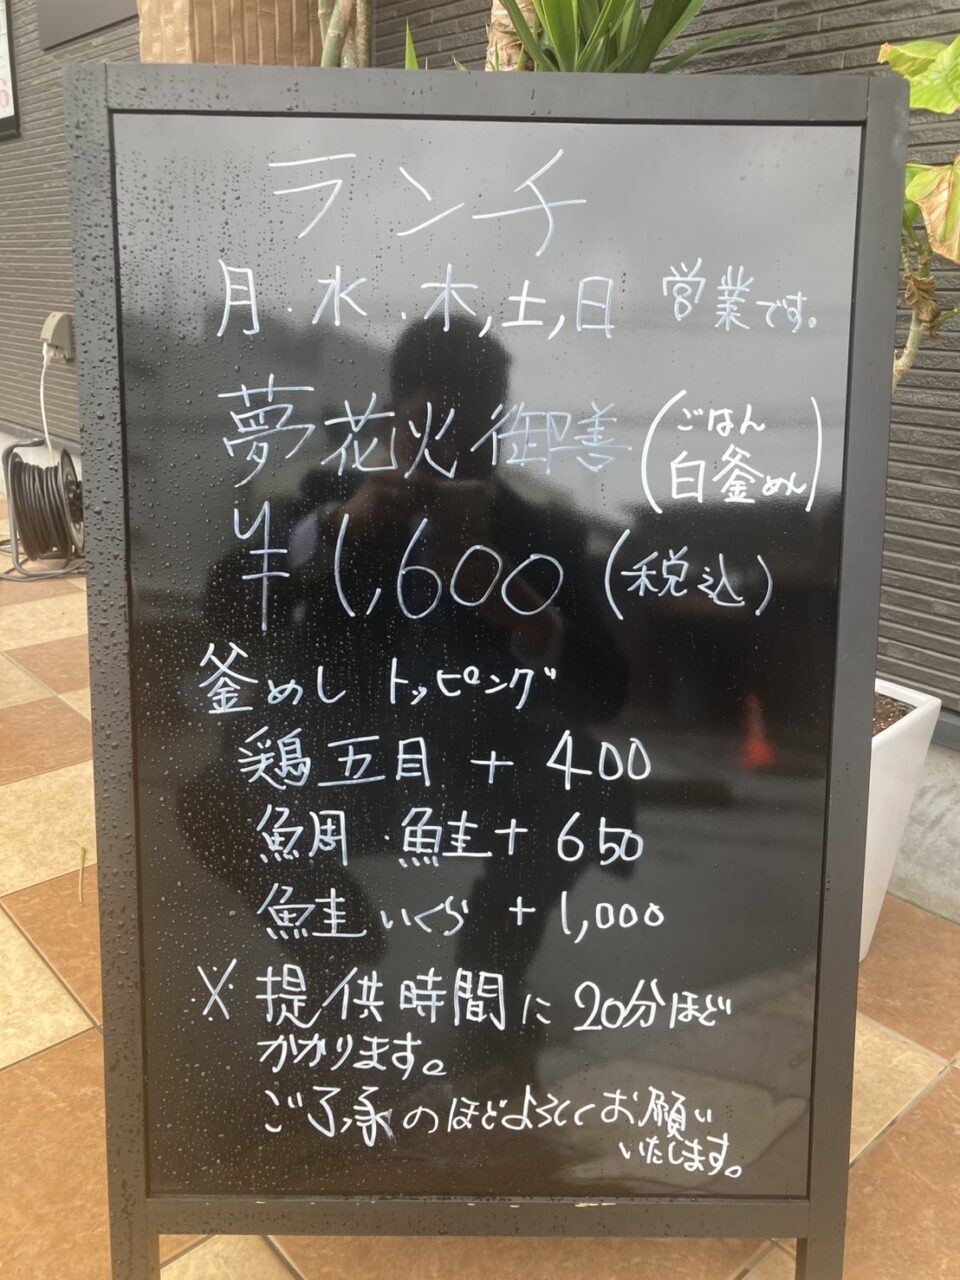 ランチ
月・水・木,土,日 営業です。
夢花火御善(ごはん
白釜めん)
¥1,600(税込)
釜めし トッピング
鶏五目 + 400
鯛・鮭+ 650
鮭いくら + 1,000
※提供時間に20分ほど
かかります。
ご了承のほどよろしくお願い
いたします。